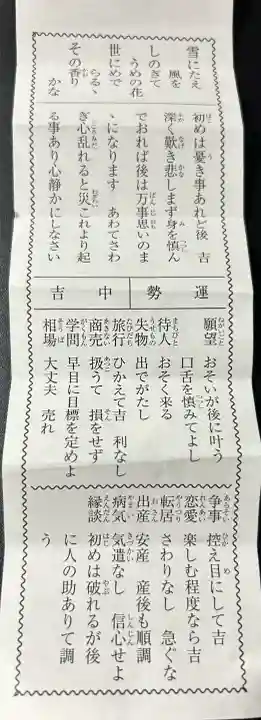 雪にたえ
風を
しのぎて
うめの花
世にめで
らるゝ
その香り
かな
初めは憂き事あれど後 吉
深く歎き悲しまず身を慎ん
でおれば後は万事思いのま
ゝになります あわてさわ
ぎ心乱れると災これより起
る事あり心静かにしなさい
運 勢 中 吉
願望 おそいが後に叶う
口舌を慎みてよし
待人 おそく来る
失物 出でがたし
旅行 ひかえて吉 利なし
商売 扱うて 損をせず
学問 早目に目標を定めよ
相場 大丈夫 売れ
争事 控え目にして吉
恋愛 楽しむ程度なら吉
転居 さわりなし 急ぐな
出産 安産 産後も順調
病気 気遣なし 信心せよ
縁談 初めは破れるが後
に人の助ありて調
う